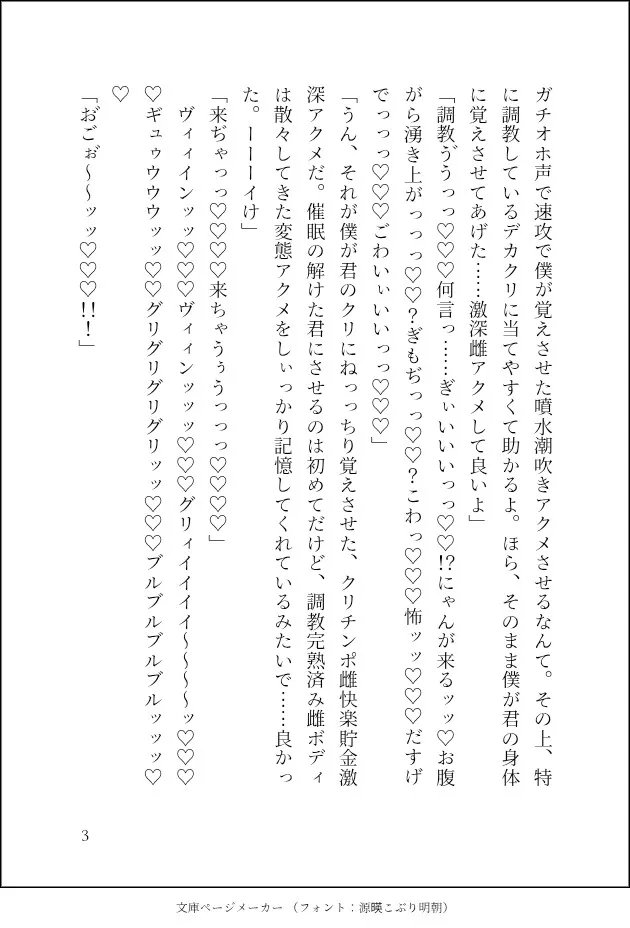 ガチオホ声で速攻で僕が覚えさせた噴水潮吹きアクメさせるなんて。その上、特
に調教しているデカクリに当てやすくて助かるよ。ほら、そのまま僕が君の身体
に覚えさせてあげた……激深雌アクメして良いよ」
「調教ゔうっっ♡♡♡何言っ……ぎぃいいいっっ♡♡!?にゃんが来るッッ♡お腹
がら湧き上がっっっ♡♡?ぎもぢっっ♡♡?こわっ♡♡♡怖ッッ♡♡♡だすげ
でっっっ♡♡♡ごわいぃいいっっ♡♡♡」
「うん、それが僕が君のクリにねっっちり覚えさせた、クリチンポ雌快楽貯金激
深アクメだ。催眠の解けた君にさせるのは初めてだけど、調教完熟済み雌ボディ
は散々してきた変態アクメをしぃっかり記憶してくれているみたいで……良かっ
た。ーーーイけ」
「来ぢゃっっ♡♡♡♡来ちゃうぅうっっっ♡♡♡♡」
ヴィィインッッ♡♡♡ヴィィンッッッ♡♡♡グリィイイイイ〜〜〜〜ッ♡♡♡
♡ギュゥウウウッッ♡♡グリグリグリグリッッ♡♡♡ブルブルブルブルッッッ♡
♡
「おごぉ〜〜ッッ♡♡♡!!!」
3
文庫ページメーカー（フォント：源暎こぶり明朝）